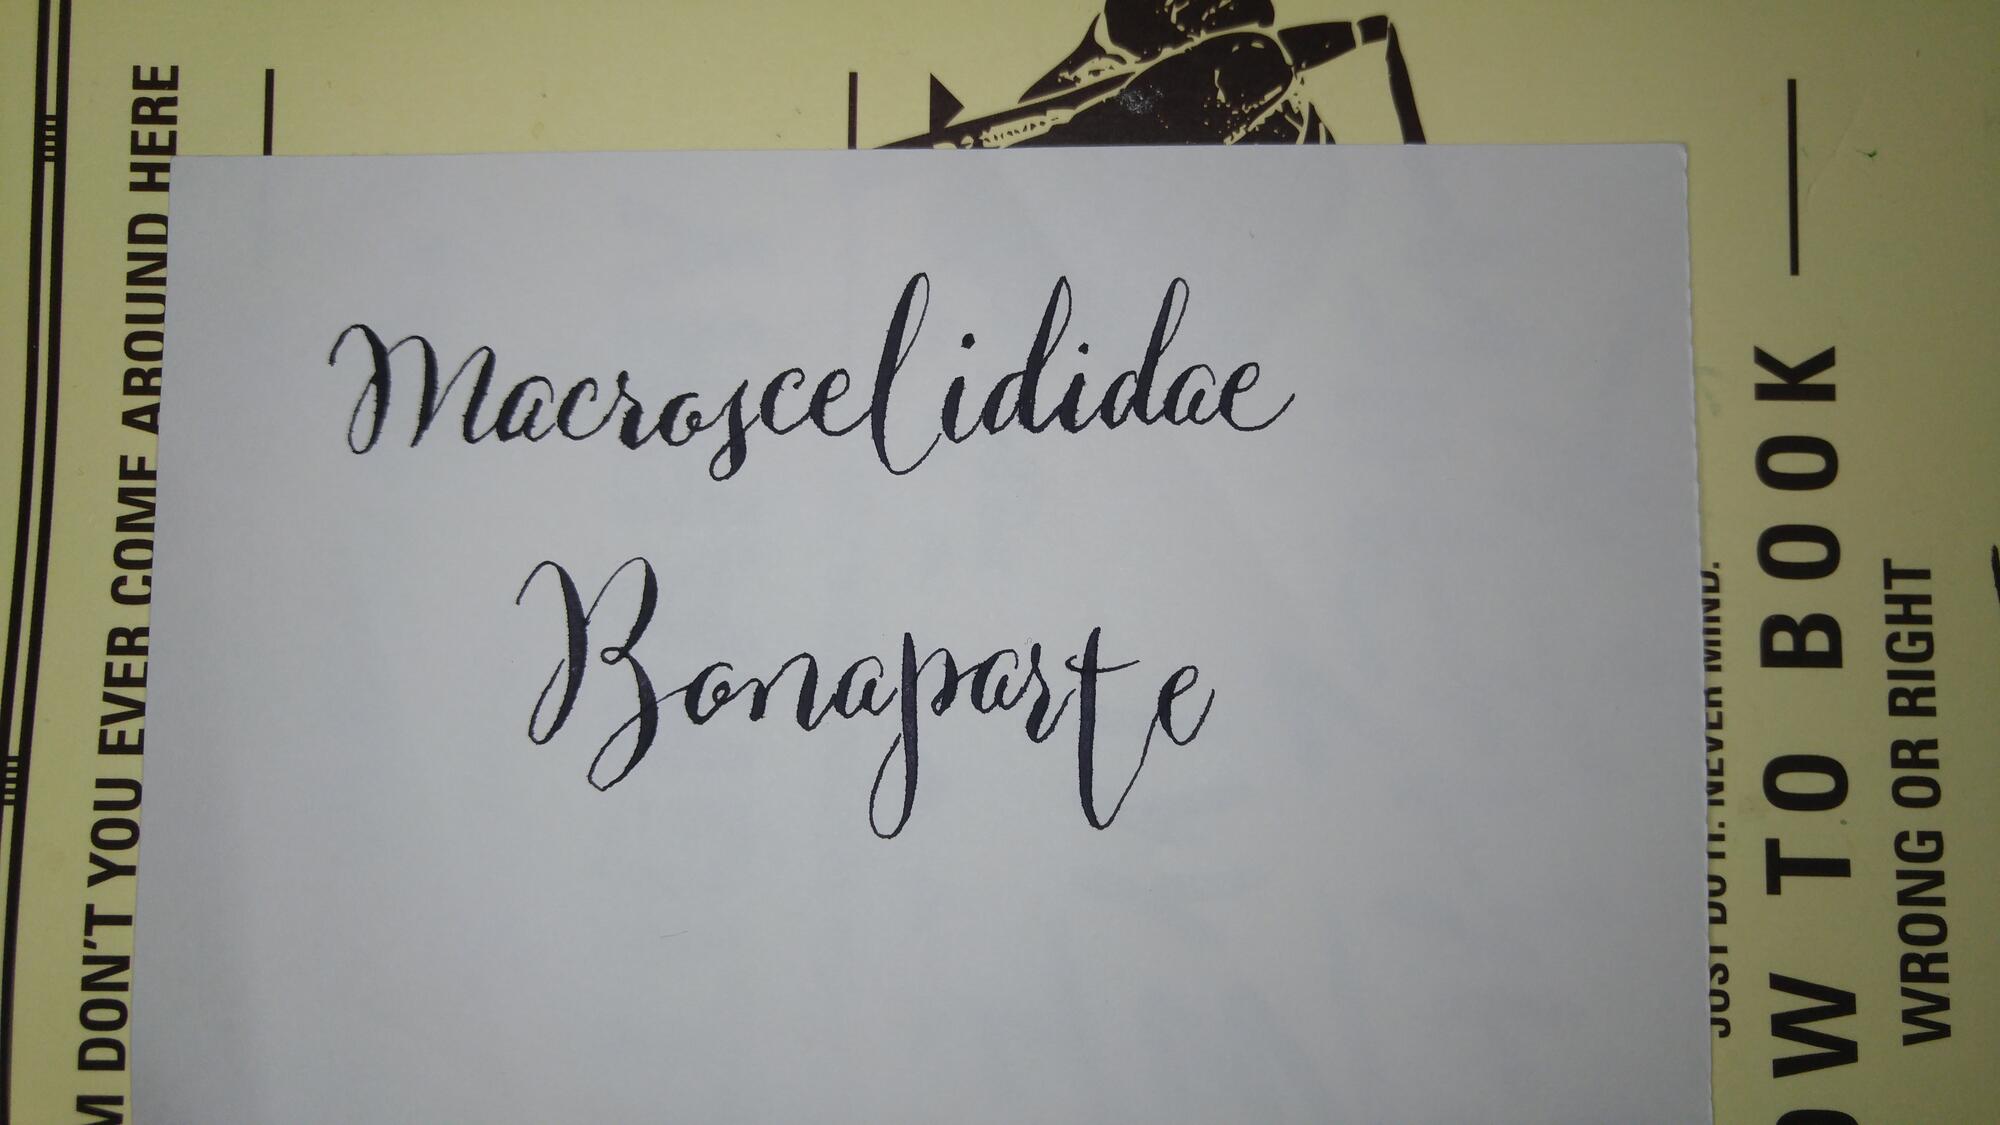 Macroscelididae
Bonaparte
M DON'T YOU EVER COME AROUND HERE
JUST DO IT. NEVER MIND.
OW TO BOOK
WRONG OR RIGHT